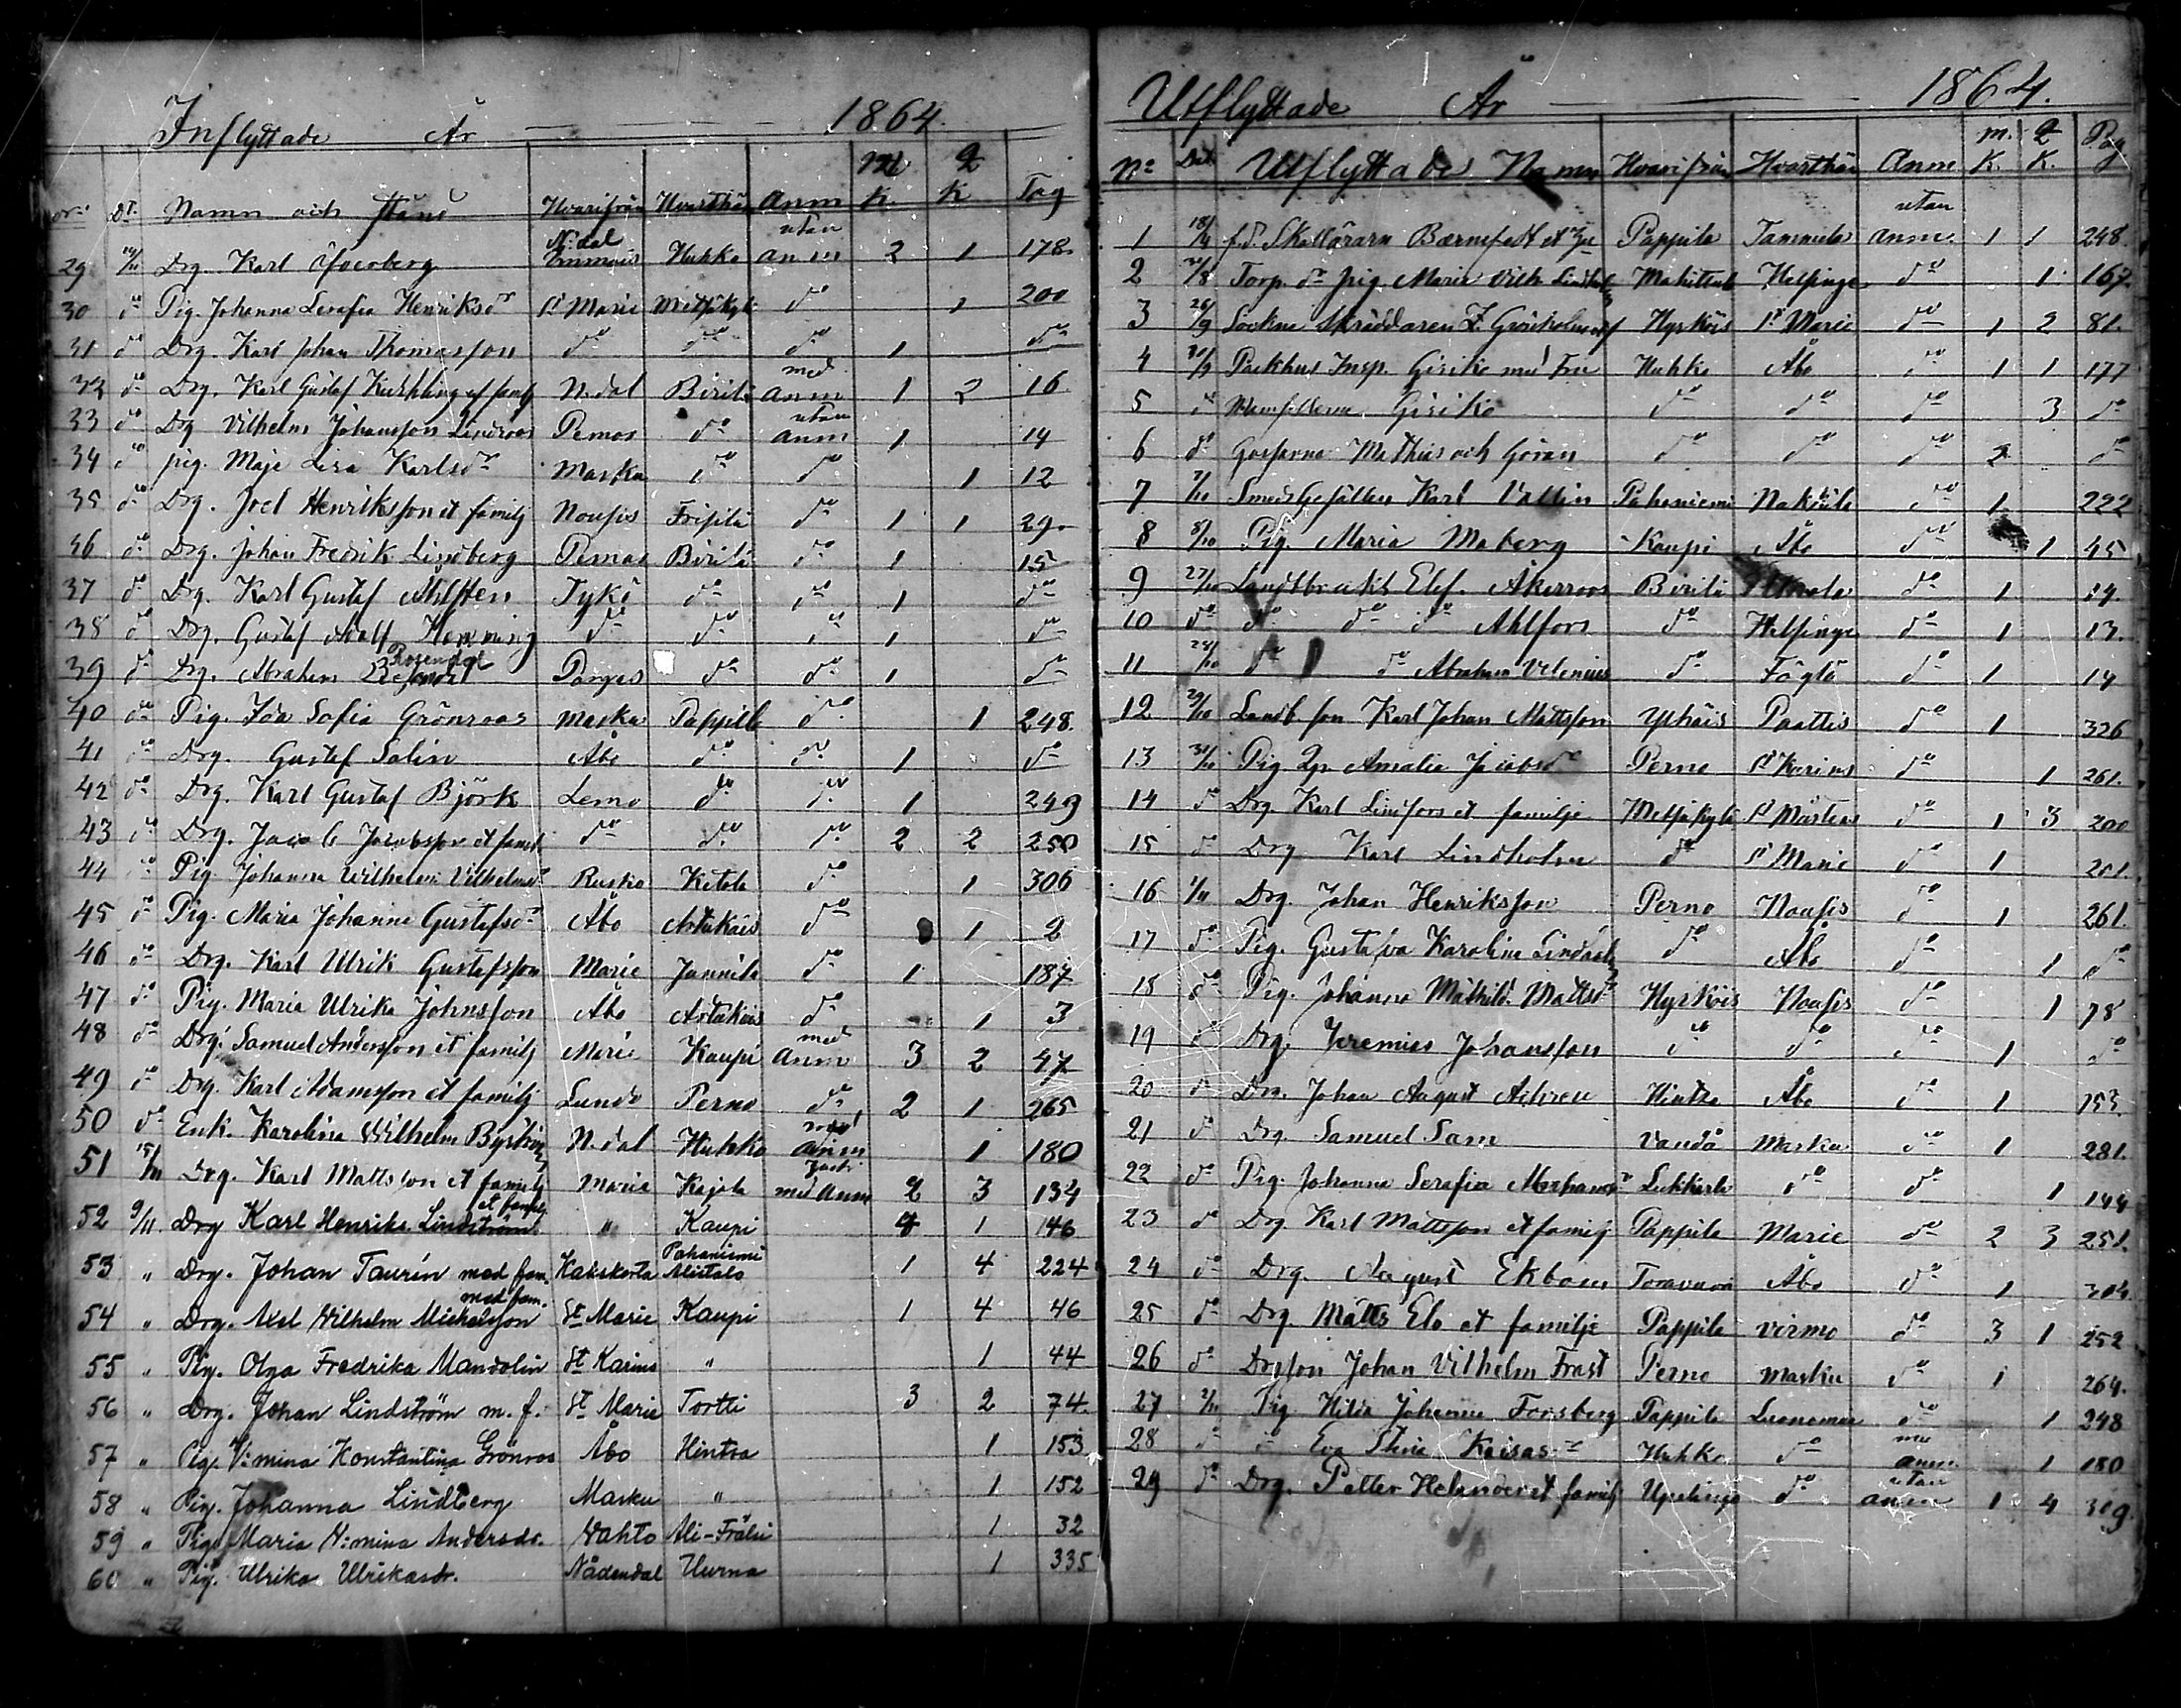 Inflyttade År 1864.
No Dt. Namn och Stånd Hvarifrån Hvarthän Anm M K. Q K Pag
29 Drg. Karl N:dal Huhko utan anm 2 1 178
30 do Pig. Johanna Serafia Henriksdr St Marie Metsäkylä do 1 200
31 do Drg. Karl Johan Thomasson do do do 1 do
32 do Drg. Karl Gustaf et familj N.dal Birila med anm 1 2 16
33 do Drg Vilhelm Johansson Lindroos Pemar do utan anm 1 14
34 do pig. Maja Lisa Karlsdr Masku do do 1 12
35 do Drg. Joel Henriksson et familj Nousis Frisila do 1 1 29
36 do Drg. Johan Fredrik Lindberg Pemar Birila do 1 15
37 do Drg. Karl Gustaf Ahlsten Tykö do do 1 do
38 do Drg. Gustaf Adolf Henning do do do 1 do
39 do Drg. Abraham Rosendal Pargas do do 1 do
40 do Pig. Ida Sofia Grönroos Masku Pappila do 1 248.
41 do Drg. Gustaf Salin Åbo do do 1 do
42 do Drg. Karl Gustaf Björk Lemo do do 1 249
43 do Drg. Jacob Jacobsson et famil. do do do 2 2 250
44 do Pig. Johanna Vilhelmina Vilhelmsdr Rusko Ketola do 1 306
45 do Pig. Maria Johanna Gustafsdr Åbo Artukais do 1 2
46 do Drg. Karl Ulrik Gustafsson Marie Junnila do 1 187
47 do Pig. Maria Ulrika Johnsson Åbo Artukais do 1 3
48 do Drg. Samuel Andersson et familj Marie Kaupi med anm 3 2 47
49 do Drg. Karl Adamsson et familj Lundo Perno do 2 1 265
50 do Enk. Karolina Wilhelm N.dal Huhko med anm 1 180
51 15/11 Drg. Karl Mattsson et familj Maria Kajala med anm 2 3 134
52 9/11. Drg Karl Henrik Lindström et familj " Kaupi 4 1 146
53 " Drg. Johan Taurin med fam. Kakskerta Pahaniemi Alistalo 1 4 224
54 " Drg. Axel Wilhelm Mickelsson med fam. St Marie Kaupi 1 4 46
55 " Pig. Olga Fredrika Mandolin St Karins " 1 44
56 " Drg. Johan Lindström m. f. St Marie Tortti 3 2 74.
57 " Pig. V:mina Konstantina Grönroos Åbo Hintsa 1 153
58 " Pig. Johanna Lindberg Masku " 1 152
59 " Pig. Maria V:mina Andersdr. Vahto Ali-Frälsi 1 32
60 " Pig. Ulrika Ulrikasdr. Nådendal Uurna 1 335
Utflyttade År 1864.
No Dat. Utflyttades Namn Hvarifrån Hvarthän Anm m. K. q K. Pag
1 18/4 f.d. Skallöraren et Pappila Tammela utan anm. 1 1 248.
2 Torp. dr pig Maria Vilh. Helsinge do 1 167.
3 26/9 Sockne Skräddaren Hyrköis St Marie do 1 2 81.
4 30/9 Packhus Insp. Gisiko med Fru Huhko Åbo do 1 1 177
5 do Mamsellerna Gisiko do do do 3 do
6 do Gossarne Mathias och Göran do do do 2 do
7 7/10 Smeds Gesällen Karl Vallin Pahaniemi Nakkila do 1 222
8 8/10 Pig. Maria Moberg Kaupi Åbo do 1 45
9 27/10 Landtbruks Elef. Åkerroos Birila do 1 14.
10 do do do do Ahlfors do Helsinge do 1 13.
11 28/10 do do Abraham Velenius do Föglö do 1 14
12 29/10 Landb. son Karl Johan Mattsson Paattis do 1 326
13 31/10 Pig Amalia Jacobsdr Perno St Karins do 1 261.
14 do Drg. Karl Lindfors et familje Metsäkylä St Mårtens do 1 3 200
15 do Drg Karl Lindholm do St Marie do 1 201.
16 1/11 Drg. Johan Henriksson Perno Nousis do 1 261.
17 do Pig. Gustafva Karolina do Åbo do 1 do
18 do Pig. Johanna Mathilda Mattsdr Hyrköis Nousis do 1 78
19 do Drg. Jeremias Johansson do do do 1 do
20 do Drg. Johan August Achren Hintsa Åbo do 1 153.
21 do Drg. Samuel Sam Masku do 1 281.
22 do Pig. Johanna Serafia do do 1 144
23 do Drg Karl Mattsson et familj Pappila Marie do 2 3 251.
24 do Drg. August Ekbom Åbo do 1
25 do Drg. Matts Elo et familje Pappila Virmo do 3 1 252
26 do Drgson Johan Vilhelm Frast Perno Masku do 1 264.
27 2/11 Pig Hilda Johanna Forsberg Pappila do 1 248
28 do do Eva Stina Kaisasdr Huhko do med anm 1 180
29 do Drg. Petter Helander et familj do utan anm 1 4 319.